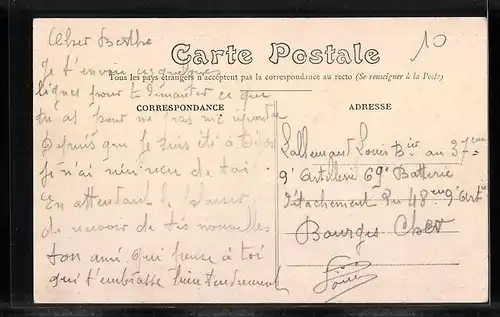 Cher Berthe
10
Carte Postale
Tous les pays étrangers n'acceptent pas la correspondance au recto (Se renseigner à la Poste)
CORRESPONDANCE
Je t'envoie ces quelques
lignes pour te demander ce que
tu as pour ne pas me répondre
depuis que je suis été à
je n'ai rien reçu de toi
En attendant le plaisir
de recevoir de tes nouvelles
ton ami qui pense à toi
qui t'embrasse bien tendrement
ADRESSE
Lallemand Louis Bier au 37eme
d'Artillerie 69e Batterie
détachement du 48eme d'Art
Bourges Cher